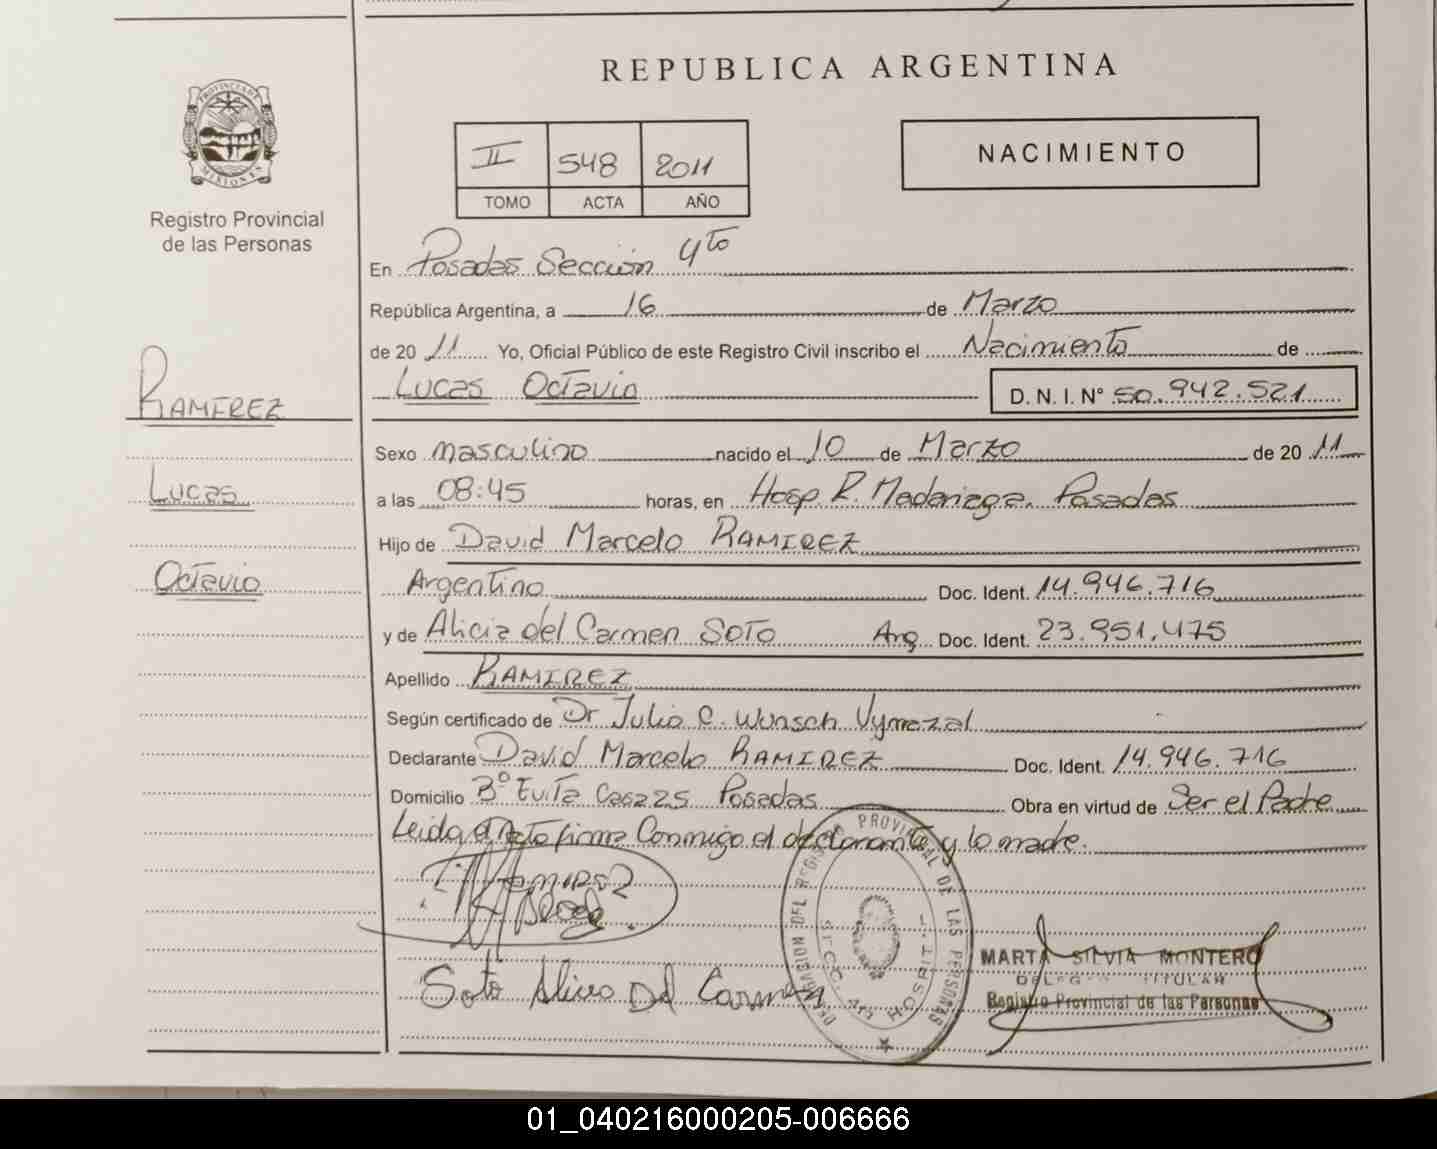 REPUBLICA ARGENTINA
PROVINCIA DE
MISIONES
Registro Provincial
de las Personas
II 548 2011
TOMO ACTA AÑO
NACIMIENTO
En Posadas Sección 4to
República Argentina, a 16 de Marzo
de 20 11 Yo, Oficial Público de este Registro Civil inscribo el Nacimiento de
Lucas Octavio D. N. I. N° 50.942.521
RAMIREZ
Lucas
Octavio
Sexo masculino nacido el 10 de Marzo de 20 11
a las 08:45 horas, en Hosp. R. Madariaga. Posadas
Hijo de David Marcelo RAMIREZ
Argentino Doc. Ident. 14.946.716
y de Alicia del Carmen SOTO Arg. Doc. Ident. 23.951.475
Apellido RAMIREZ
Según certificado de Dr Julio C. Wunsch Vymazal
Declarante David Marcelo RAMIREZ Doc. Ident. 14.946.716
Domicilio B° Evita Casa 25 Posadas Obra en virtud de Ser el Padre
Leida el acta firma Conmigo el declarante y la madre.
Ramirez
Soto Alicia Del Carmen
DELEGACION DEL REGISTRO PROVINCIAL DE LAS PERSONAS
SECC. 4ta HOSPITAL
MARTA SILVIA MONTERO
DELEGADA TITULAR
Registro Provincial de las Personas
01_040216000205-006666